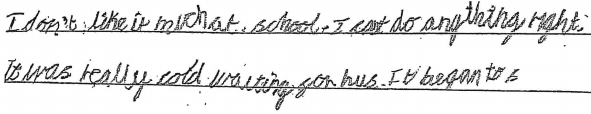 I don't like it much at school. I cant do anything right.
It was really cold waiting for bus. It began to s